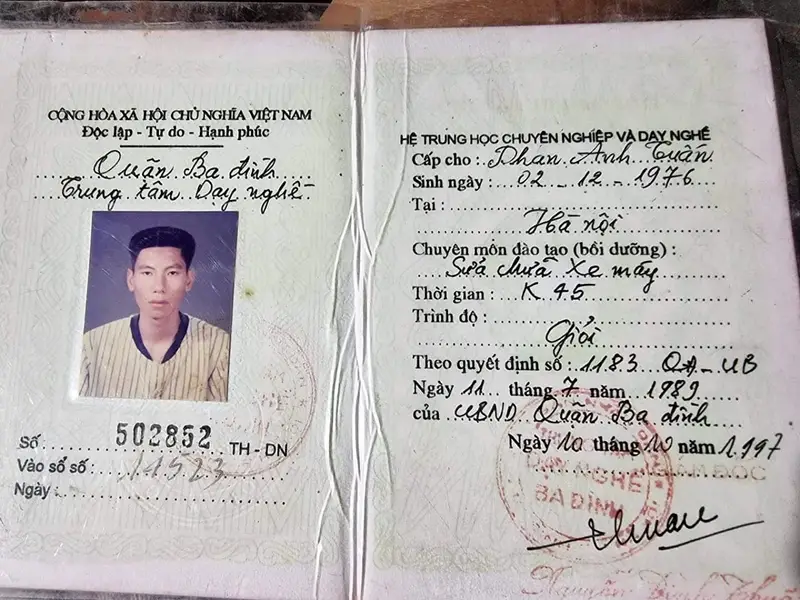 CỘNG HÒA XÃ HỘI CHỦ NGHĨA VIỆT NAM
Độc lập - Tự do - Hạnh phúc
Quận Ba đình
Trung tâm Dạy nghề
Số 502852 TH - DN
Vào sổ số : 11523
Ngày :
HỆ TRUNG HỌC CHUYÊN NGHIỆP VÀ DẠY NGHỀ
Cấp cho : Phan Anh Tuấn
Sinh ngày : 02 - 12 - 1976
Tại :
Hà nội
Chuyên môn đào tạo (bồi dưỡng) :
Sửa chữa Xe máy
Thời gian : K 45
Trình độ :
Giỏi
Theo quyết định số : 1183 QĐ - UB
Ngày 11 tháng 7 năm 1989
của UBND Quận Ba đình
Ngày 10 tháng 10 năm 1997
GIÁM ĐỐC
DẠY NGHỀ
BA ĐÌNH